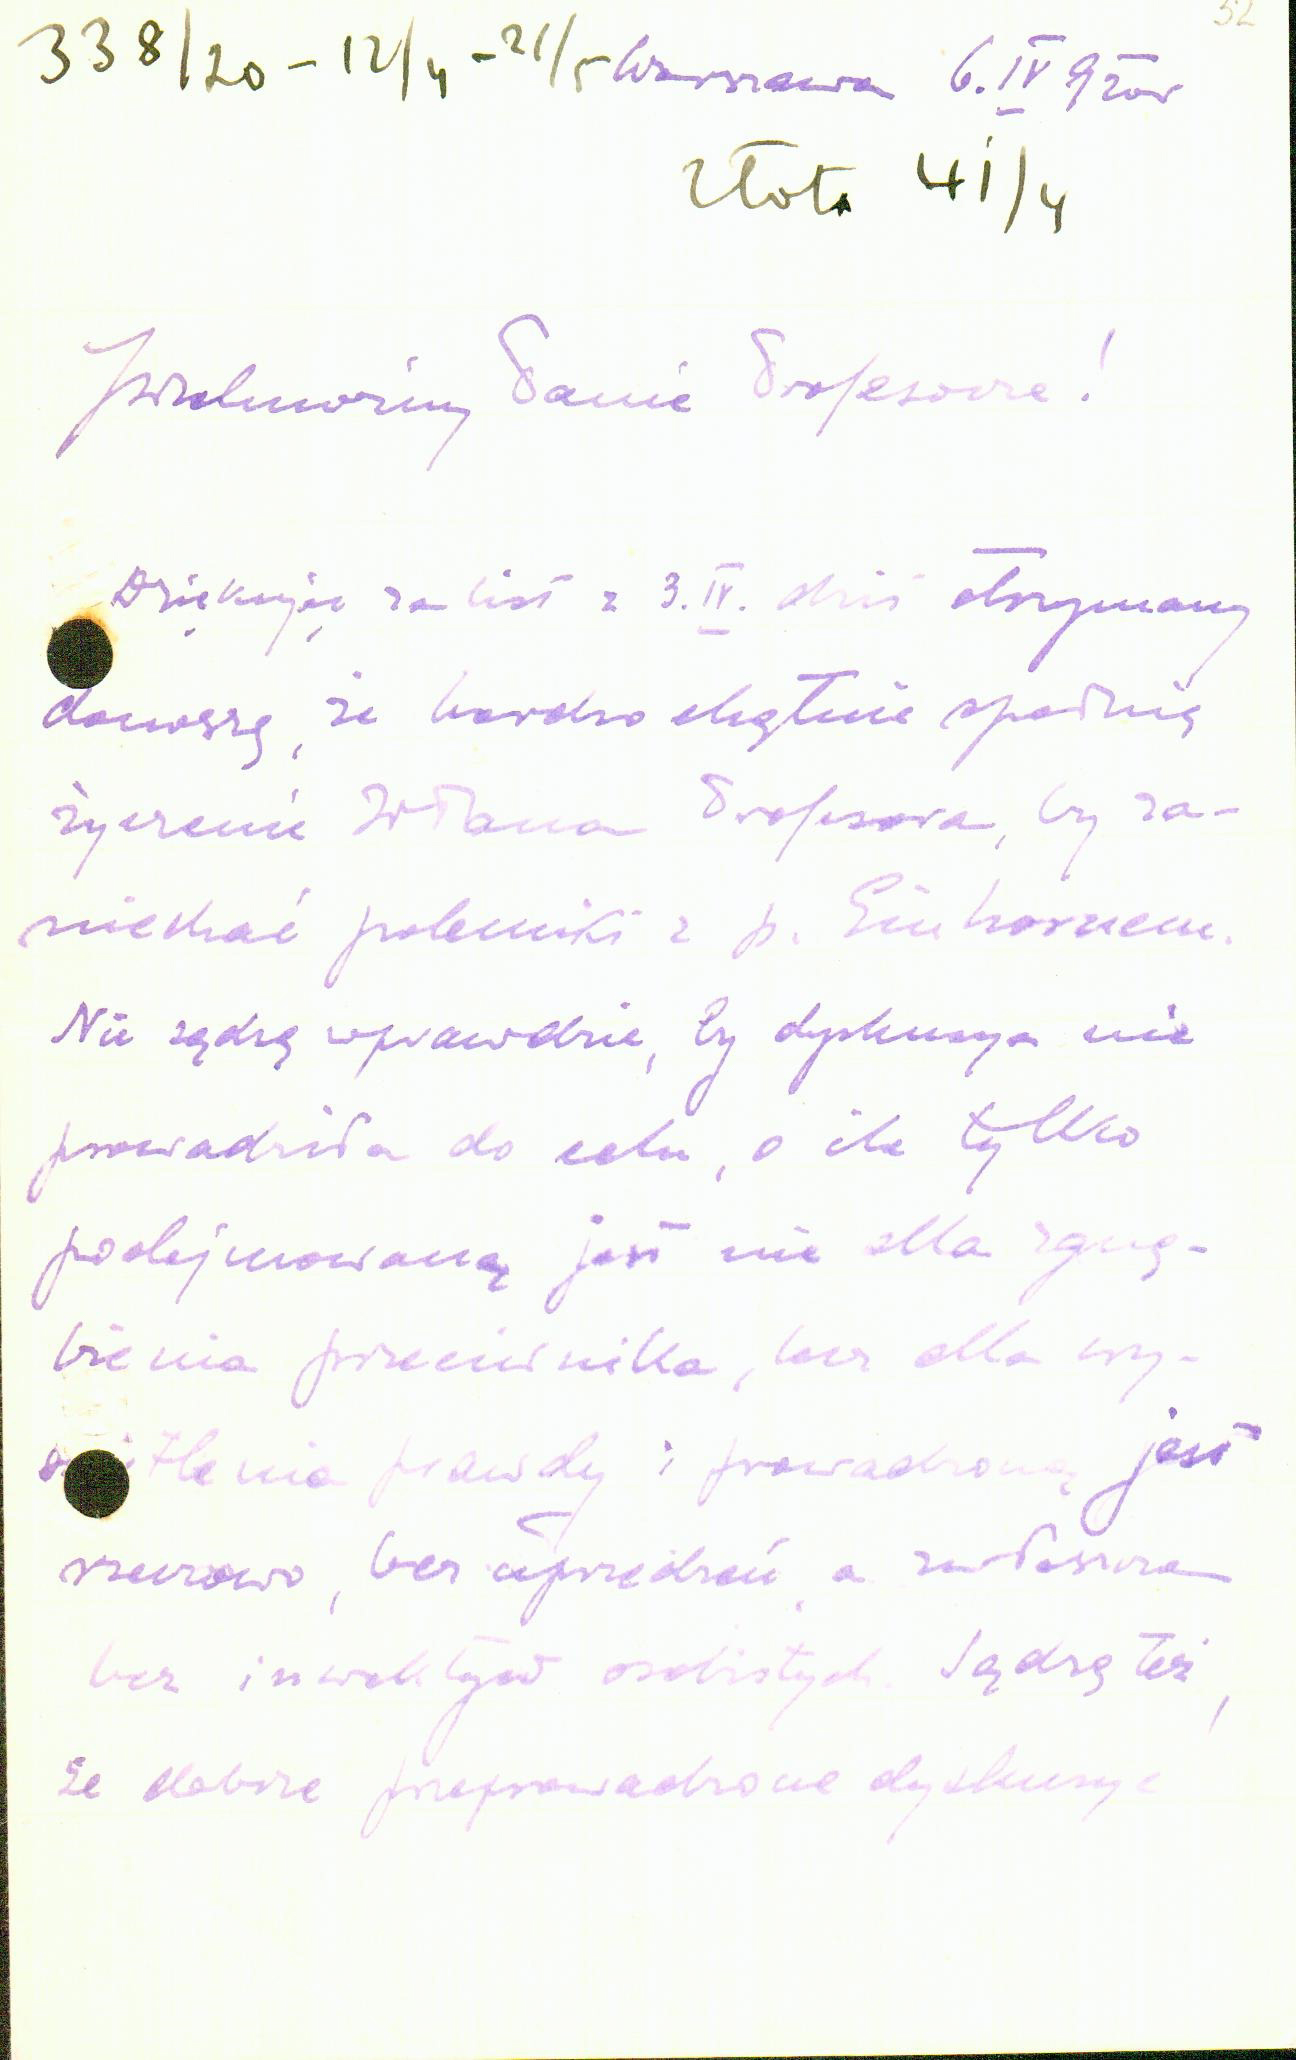 52
338/20 - 12/4 - 21/5 Warszawa 6.IV 920r
Złota 41/4
JWielmożny Panie Profesorze!
Dziękując za list z 3.IV. dziś otrzymany
donoszę, że bardzo chętnie spełnię
życzenie WPana Profesora, by za-
niechać polemiki z p. Einhornem.
Nie sądzę wprawdzie, by dyskusya nie
prowadziła do celu, o ile tylko
podejmowaną jest nie dla zgnę-
bienia przeciwnika, lecz dla wy-
świetlenia prawdy i prowadzoną jest
rzeczowo, bez uprzedzeń, a zwłaszcza
bez inwektyw osobistych. Sądzę też,
że dobrze przeprowadzone dyskusye